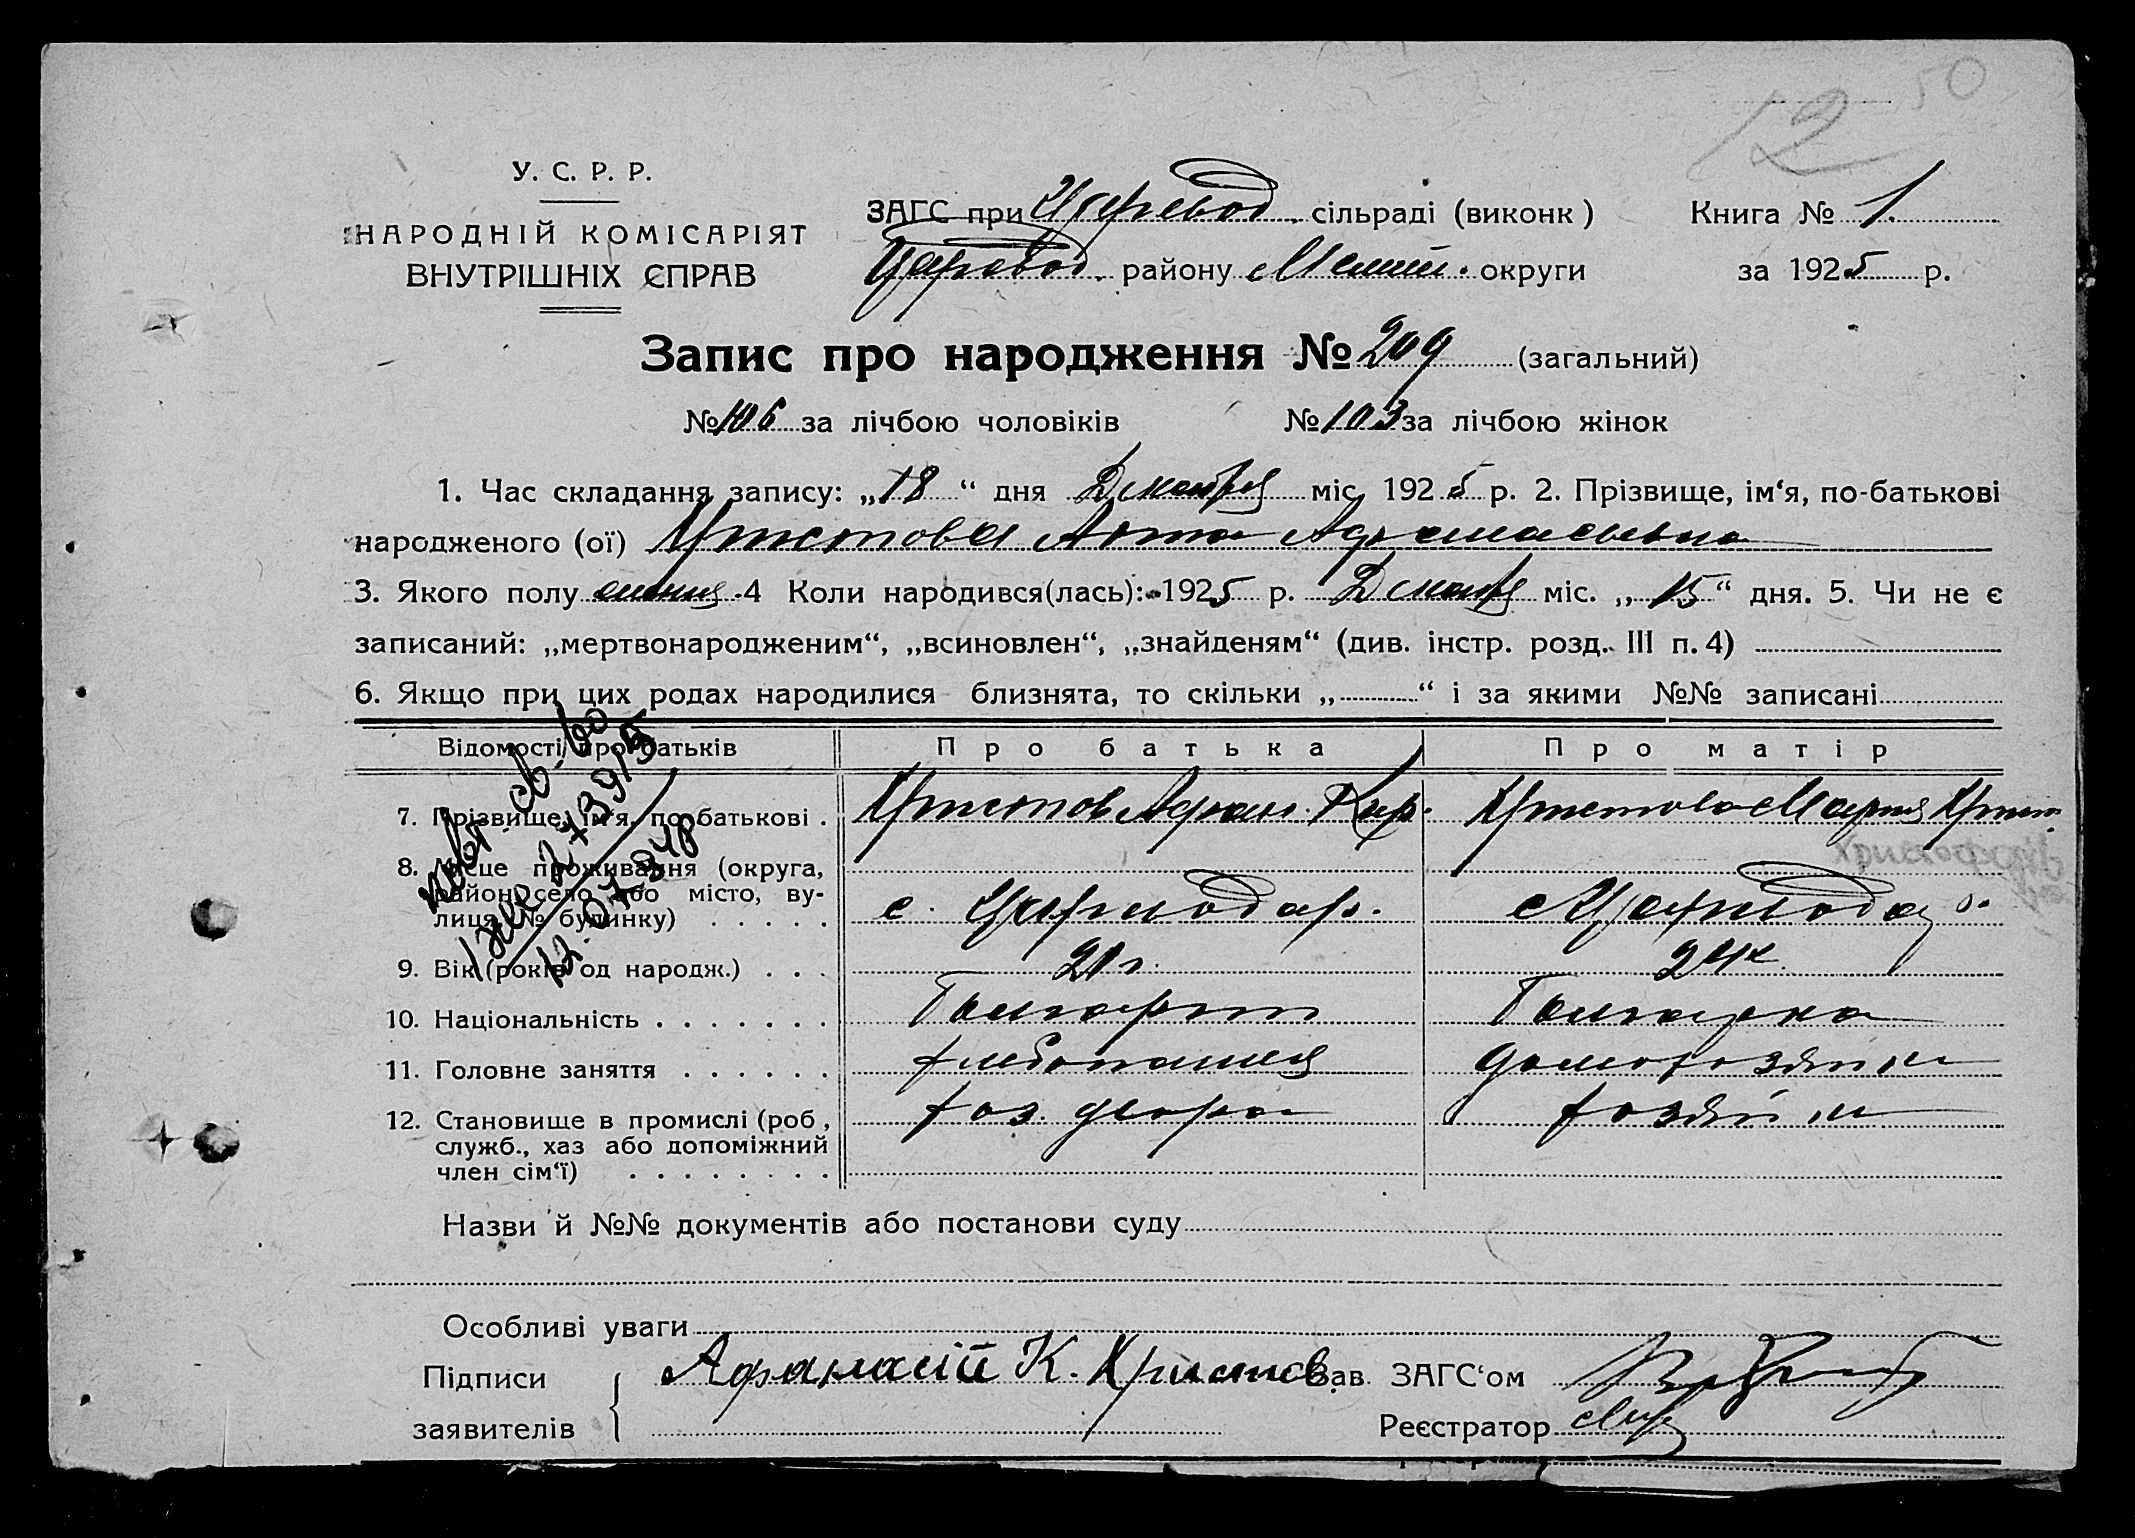 50
12
У. С. Р. Р.
НАРОДНІЙ КОМІСАРІЯТ
ВНУТРІШНІХ СПРАВ
ЗАГС при Царевод. сільраді (виконк) Книга № 1.
Царевод. району Меліт. округи за 1925 р.
Запис про народження № 209 (загальний)
№ 106 за лічбою чоловіків № 103 за лічбою жінок
1. Час складання запису: „18“ дня Декабря міс. 1925 р. 2. Прізвище, ім‘я, по-батькові
народженого (ої) Христова Анна Афанасьевна
3. Якого полу 4 Коли народився(лась): 1925 р. Декабря міс. „15“ дня. 5. Чи не є
записаний: „мертвонародженим“, „всиновлен“, „знайденям“ (див. інстр. розд. III п. 4)
6. Якщо при цих родах народилися близнята, то скільки „ “ і за якими №№ записані
Відомості про батьків Про батька Про матір
7. Прізвище, ім‘я, по-батькові Христов Афан. Кир. Христова Мария Христ.
8. Місце проживання (округа,
район, село або місто, ву-
лиця, № будинку)
9. Вік (років од народж.) 21 г. 24
10. Національність Болгарин Болгарка
11. Головне заняття хлебопашец домохозяйка
12. Становище в промислі (роб., хоз. двора хозяйка
служб., хаз або допоміжний
член сім‘ї)
Назви й №№ документів або постанови суду
Особливі уваги
Підписи Афанасій К. Христов. Зав. ЗАГС‘ом
заявителів Реєстратор